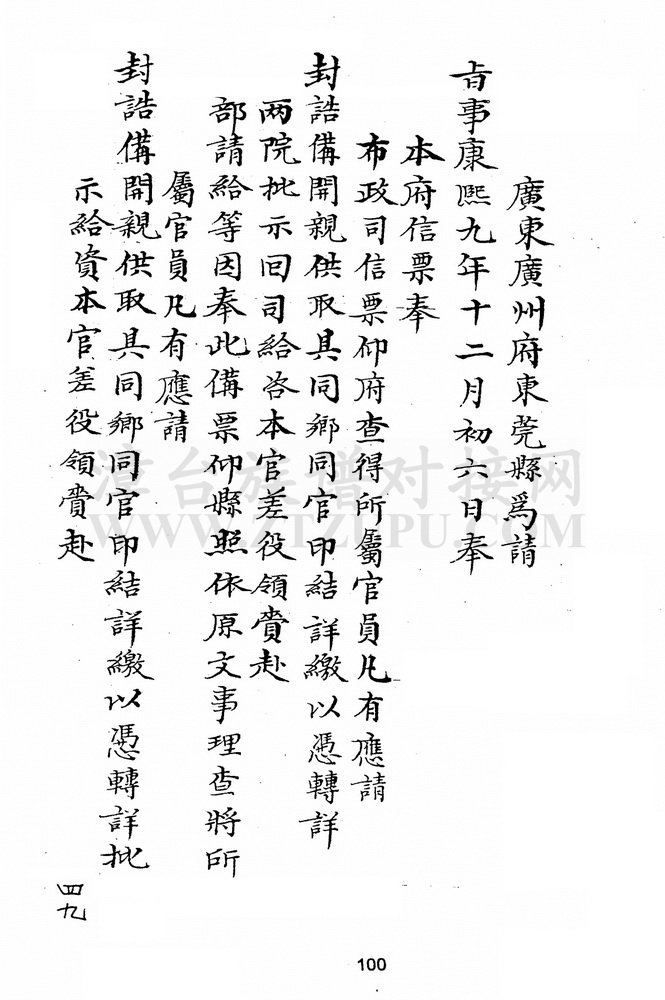 廣東廣州府東莞縣爲請
旨事康熙九年十二月初六日奉
本府信票奉
布政司信票仰府查得所屬官員凡有應請
封誥備開親供取具同鄉同官印結詳繳以憑轉詳
两院批示回司給咨本官差役領賫赴
部請給等因奉此備票仰縣照依原文事理查將所
屬官員凡有應請
封誥備開親供取具同鄉同官印結詳繳以憑轉詳批
示給資本官差役領賫赴
四九
100
漳台族谱对接网
WWW.ZTZUPU.COM